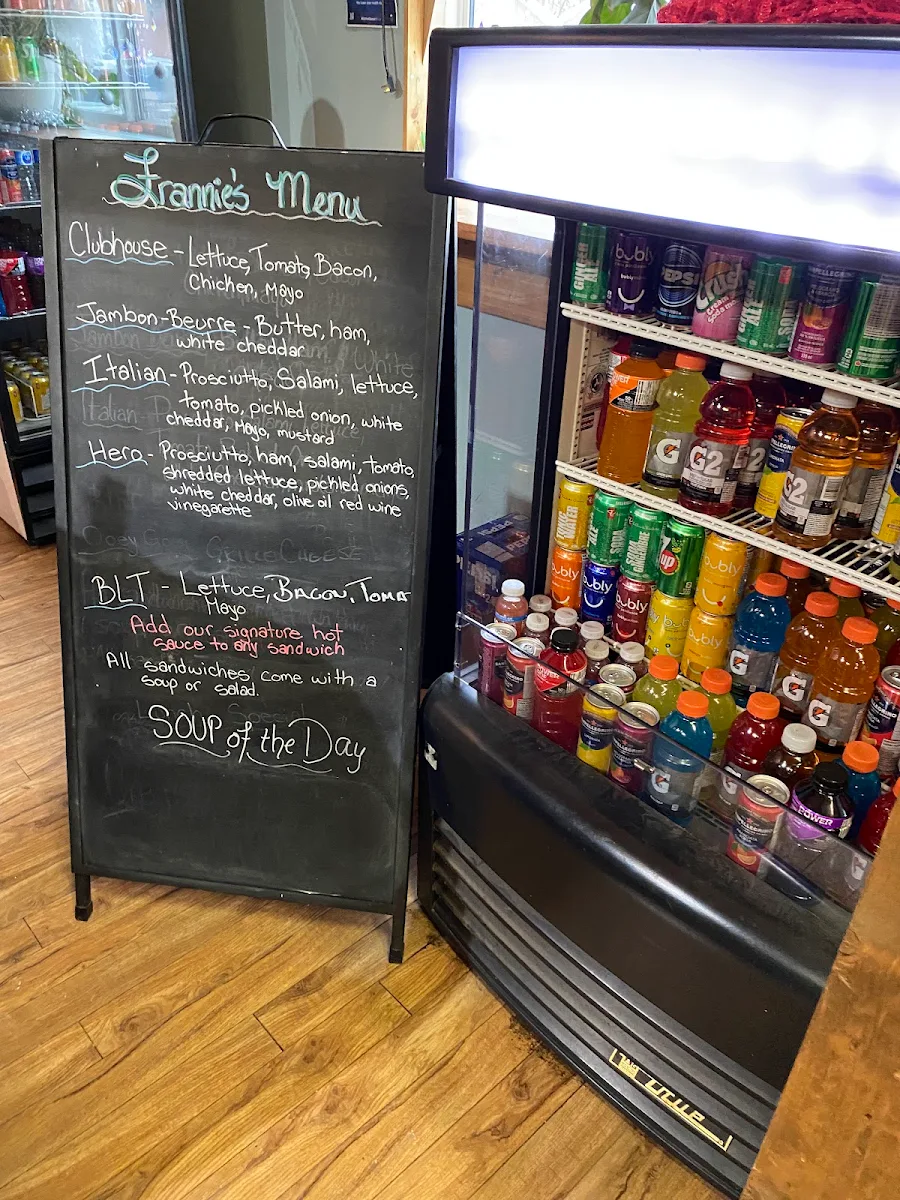 Frannie's Menu
Clubhouse - Lettuce, Tomato, Bacon,
Chicken, Mayo
Jambon-Beurre - Butter, ham,
white cheddar
Italian - Prosciutto, Salami, lettuce,
tomato, pickled onion, white
cheddar, Mayo, mustard
Hero - Prosciutto, ham, salami, tomato,
shredded lettuce, pickled onions,
white cheddar, olive oil red wine
vinegarette
Ooey Gooey Grilled Cheese
BLT - Lettuce, Bacon, Toma
Mayo
Add our signature hot
sauce to any sandwich
All sandwiches come with a
soup or salad.
Soup of the Day
GINGER ALE
bubly
bubly
PEPSI
Crush
Cream Soda
G
G2
G2
bubly
bubly
bubly
bubly
bubly
7up
G
G
G
G
G
true